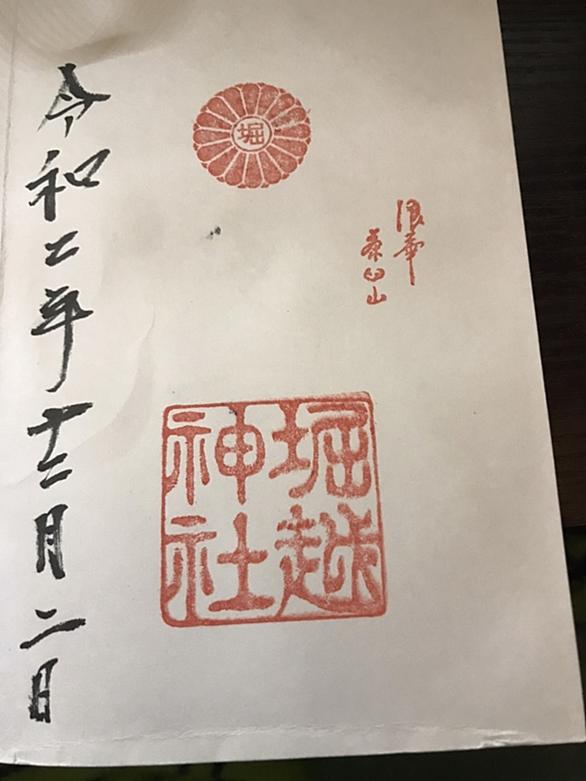 浪華
茶臼山
堀
堀越
神社
令和二年十二月二日